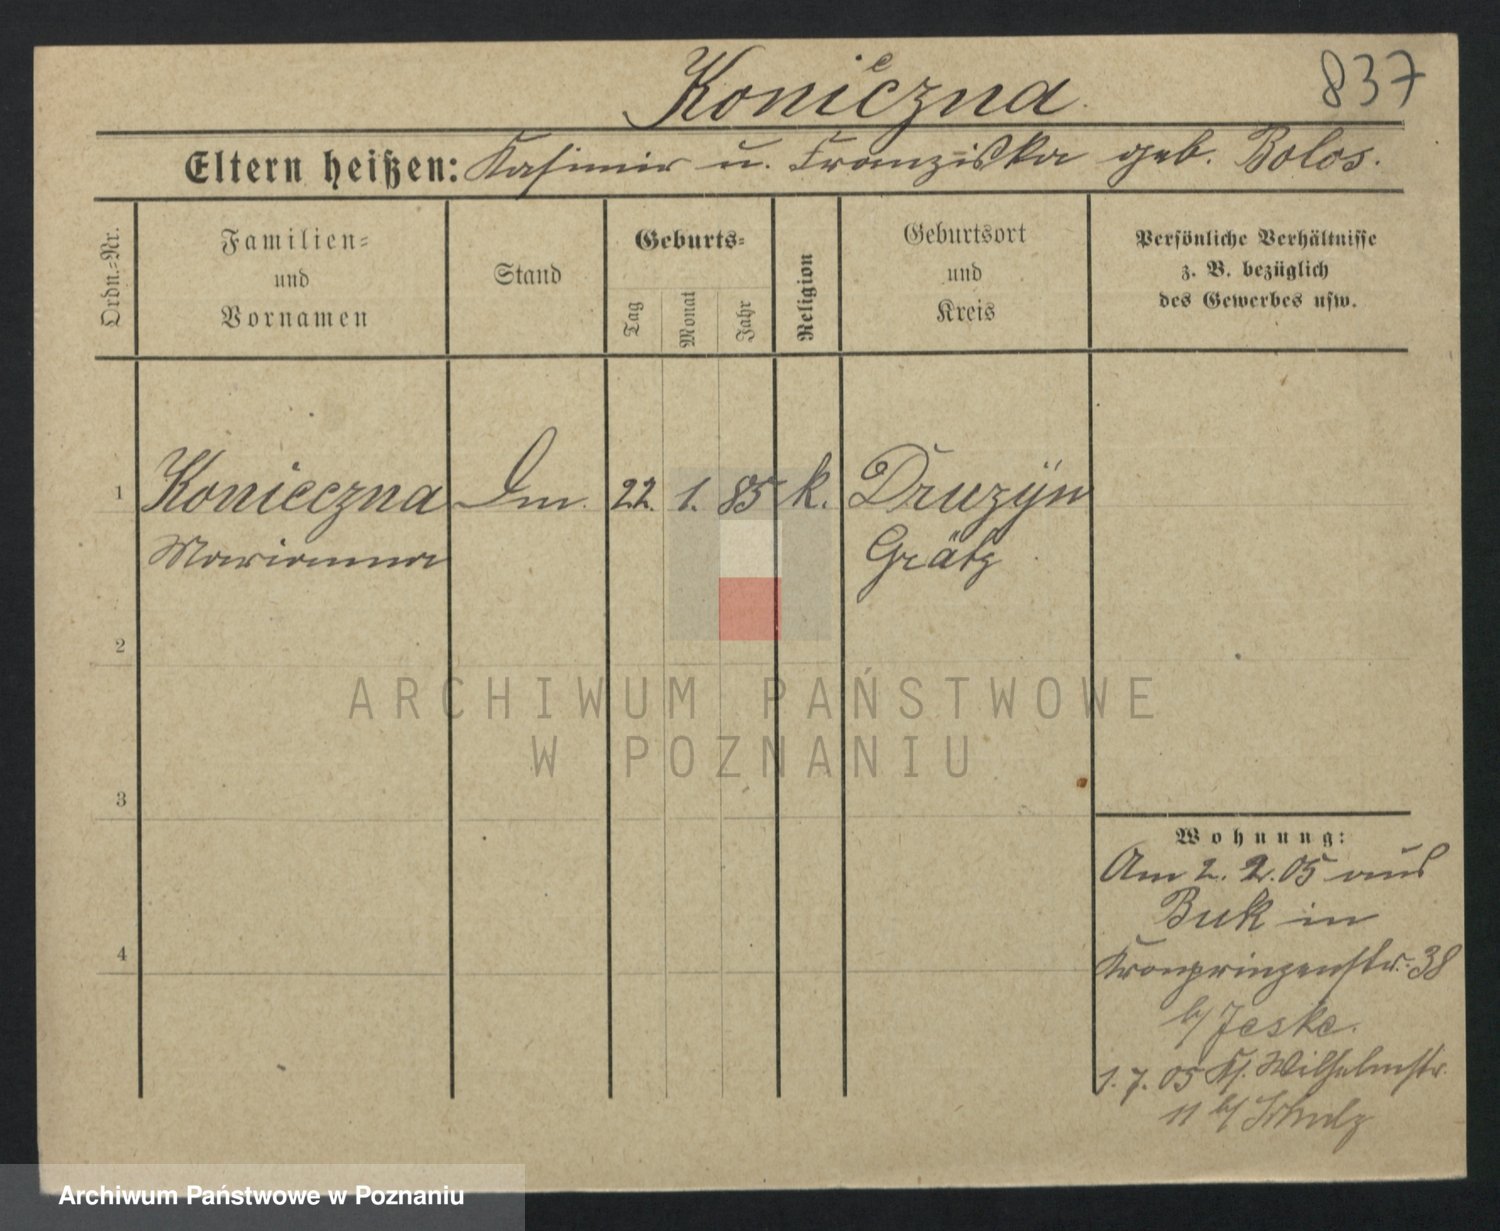 Konieczna
837
Eltern heißen: Kasimir u. Franziska geb. Bolos.
Ordn.=Nr.
Familien=
und
Vornamen
Stand
Geburts=
Tag
Monat
Jahr
Religion
Geburtsort
und
Kreis
Persönliche Verhältnisse
z. B. bezüglich
des Gewerbes usw.
1 Konieczna Dm. 22. 1. 85 k. Druzyn
Marianna Grätz
2
ARCHIWUM PAŃSTWOWE
W POZNANIU
3
Wohnung:
Am 2. 2. 05 aus
Buk in
4
Kronprinzenstr. 38
b/ Jeske.
1. 7. 05 Kl. Wilhelmstr.
11 b/ Schulz
Archiwum Państwowe w Poznaniu